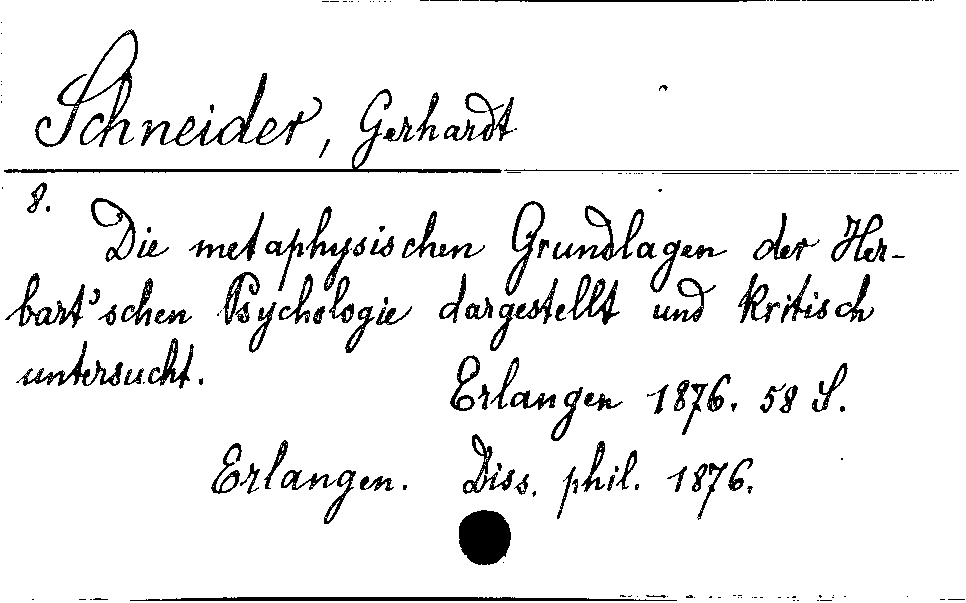 Schneider, Gerhardt
8.
Die metaphysischen Grundlagen der Her-
bart'schen Psychologie dargestellt und kritisch
untersucht.
Erlangen 1876. 58 S.
Erlangen. Diss. phil. 1876.